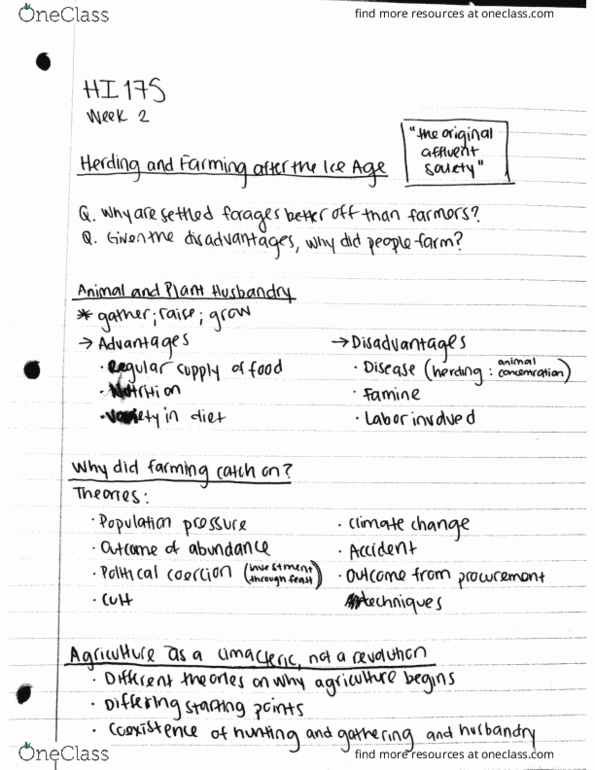 OneClass
find more resources at oneclass.com
HI 175
Week 2
"the original
affluent
society"
Herding and Farming after the Ice Age
Q. Why are settled forages better off than farmers?
Q. Given the disadvantages, why did people farm?
Animal and Plant Husbandry
* gather; raise; grow
→ Advantages
· Regular supply of food
· Nutrition
· Variety in diet
→ Disadvantages
· Disease (herding: animal concentration)
· Famine
· Labor involved
Why did farming catch on?
Theories:
· Population pressure
· Outcome of abundance
· Political coercion (investment through feast)
· Cult
· Climate change
· Accident
· Outcome from procurement
techniques
Agriculture as a climacteric, not a revolution
· Different theories on why agriculture begins
· Differing starting points
· Coexistence of hunting and gathering and husbandry
OneClass
find more resources at oneclass.com